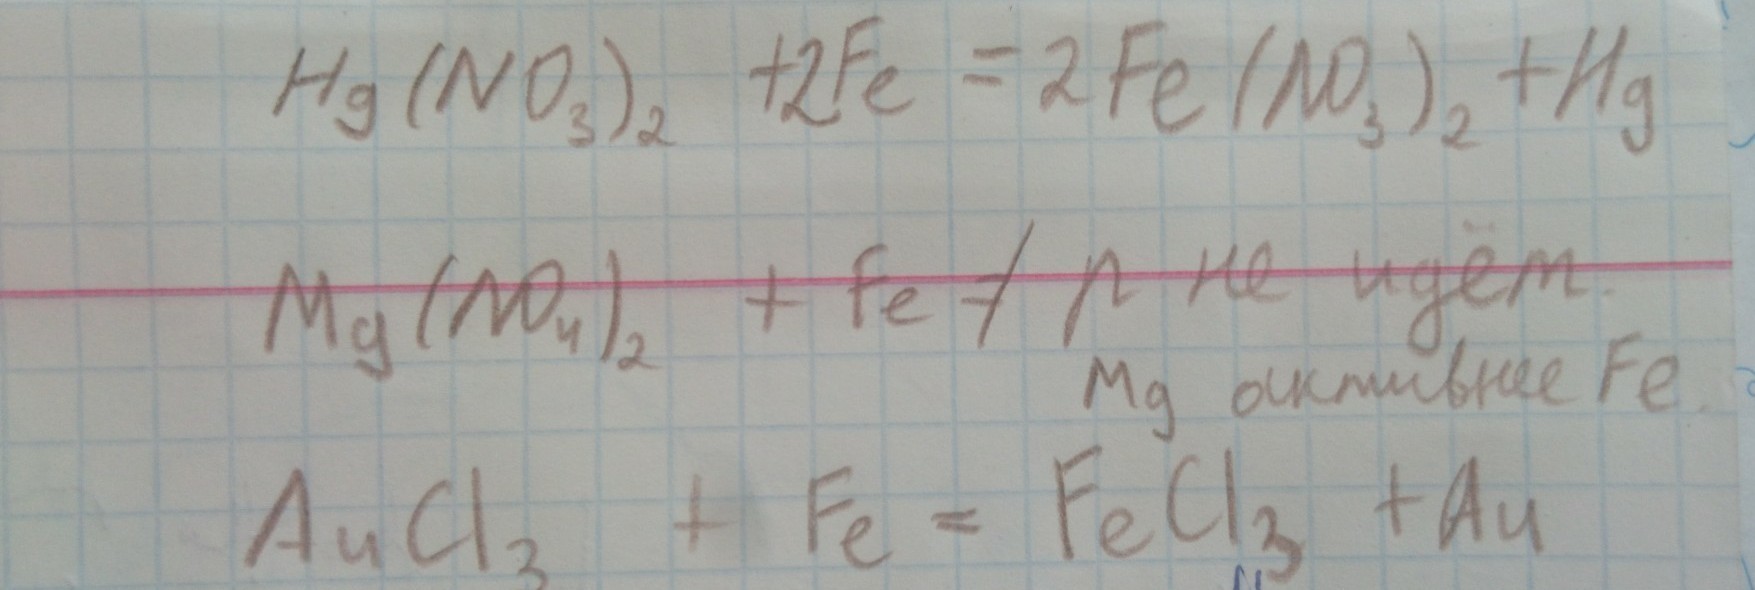 Hg(NO₃)₂ +2Fe = 2Fe(NO₃)₂ + Hg
Mg(NO₄)₂ + Fe ≠ р не идёт.
Mg активнее Fe.
AuCl₃ + Fe = FeCl₃ + Au